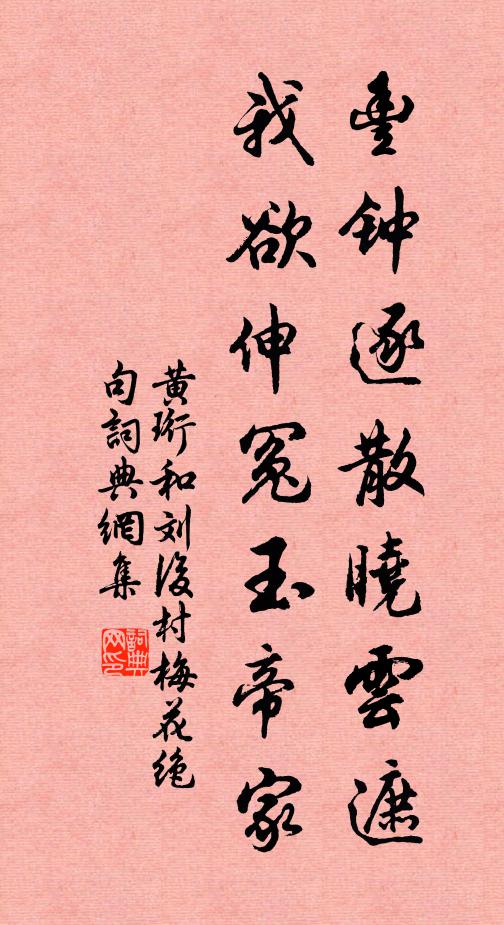 豊钟逐散曉雲遮
我欲伸冤玉帝家
黄珩和刘後村梅花绝
句詞典網集
詞典网印